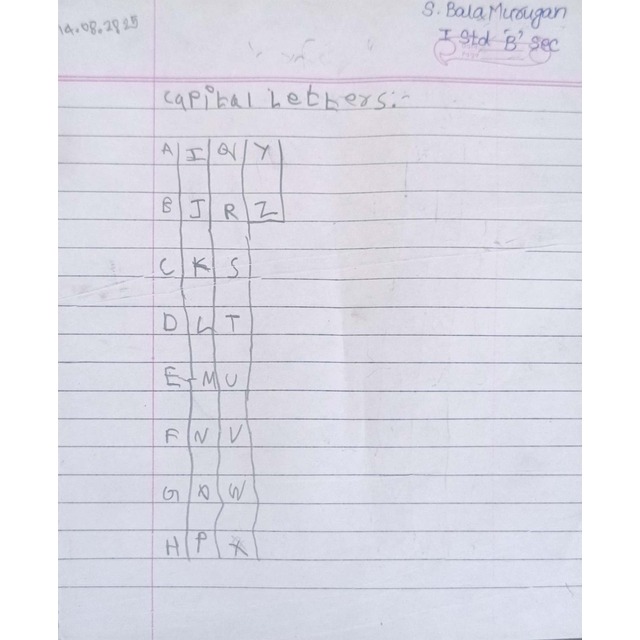 14.08.2025
S. Bala Murugan
I Std 'B' Sec
Capital Letters:-
A I Q Y
B J R Z
C K S
D L T
E M U
F N V
G O W
H P X